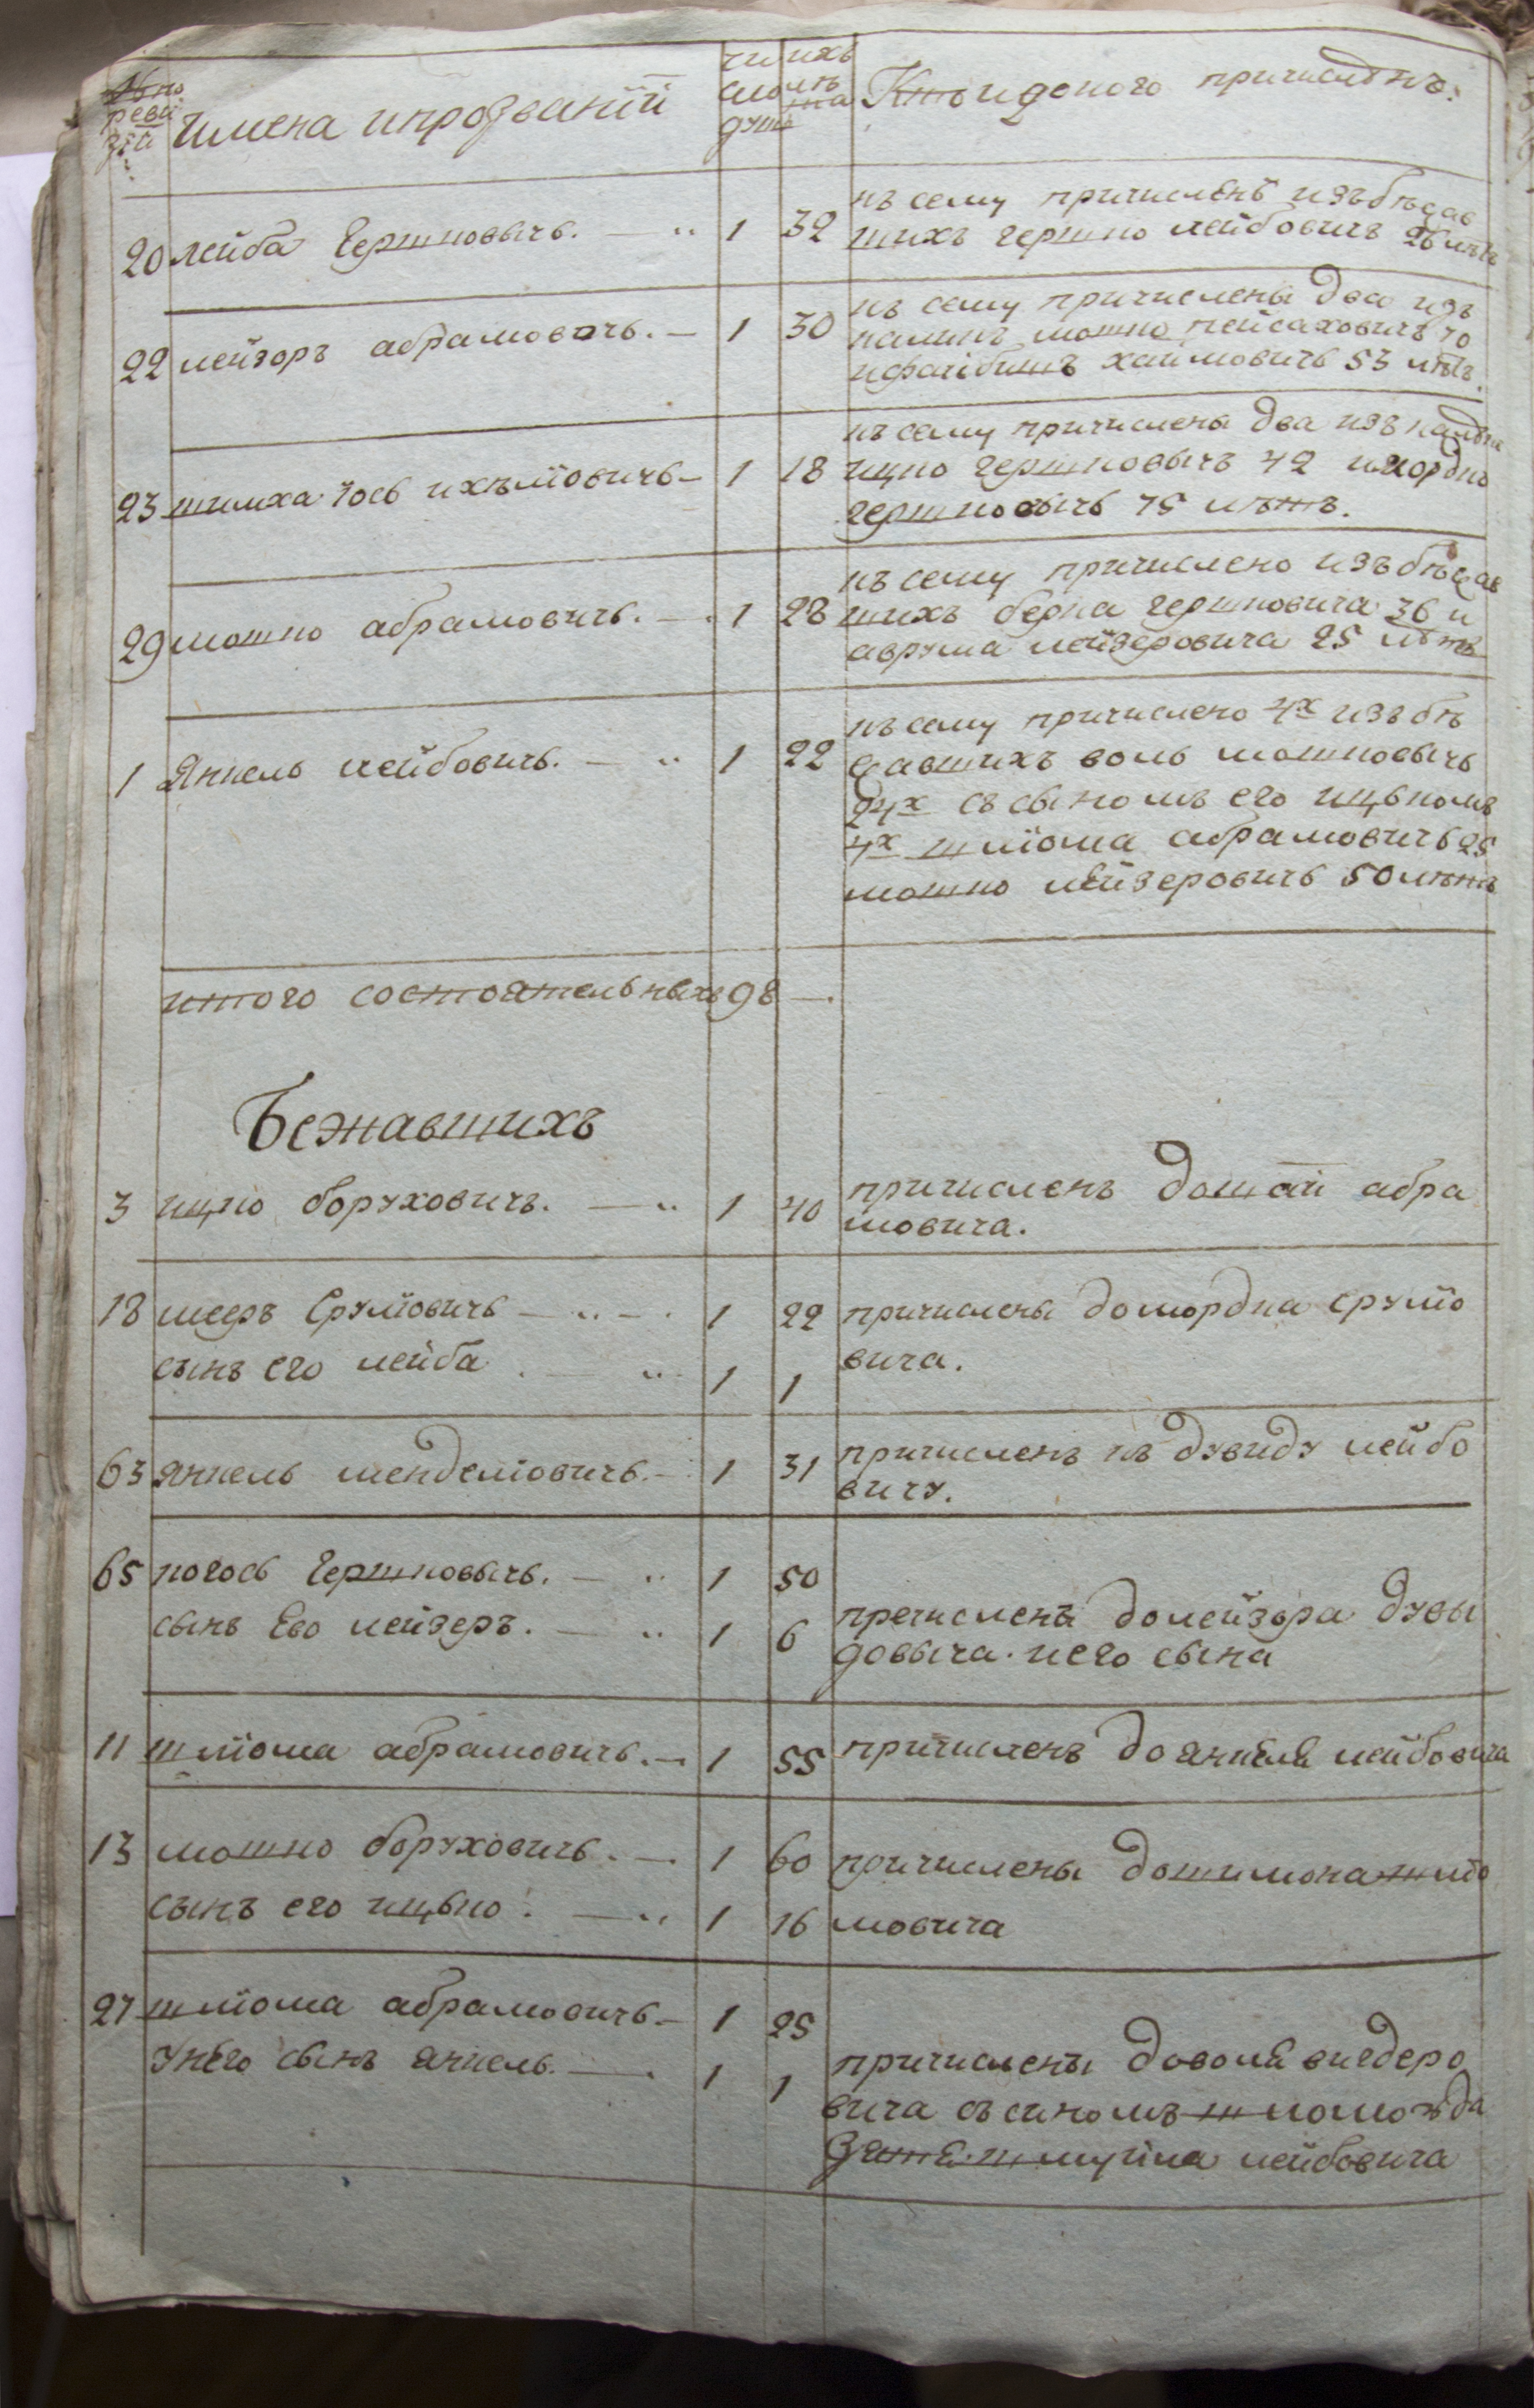 № по
реви
зіи
Имена ипрозваніи
чи
сло
душ
ихъ
лѣ
та
Кто идокого причисленъ.
20 лейба Гершковичъ. 1 32
къ сему причисленъ изъ бѣжав
шихъ гершко лейбовичъ 26 лѣтъ
22 лейзоръ абрамовичъ. 1 30
къ сему причислены два изъ
калѣкъ мошко пейсаховичъ 70
хаимовичъ 53 лѣтъ.
23 шимха Іось ихелїовичъ 1 18
къ сему причислены два изъ калѣкъ
ицко гершковичъ 42 имордко
гершковичъ 75 лѣтъ.
29 мошко абрамовичъ. 1 28
къ сему причислено изъ бѣжав
шихъ берка гершковича 36 и
аврума лейзеровича 25 лѣтъ
1 Янкель лейбовичъ. 1 22
къ сему причислено 4х изъ бѣ
жавшихъ воль мошковичъ
24х съ сыномъ его ицькомъ
4х шліома абрамовичъ 25
мошко лейзеровичъ 50 лѣтъ
итого состоятельныхъ 98
Бежавшихъ
3 ицко боруховичъ. 1 40
причисленъ дошаи абра
мовича.
18 мееръ Срулїовичъ 1 22
причислены домордка срулїо
сынъ его лейба. 1 1
вича.
63 янкель менделїовичъ. 1 31
причисленъ къ дувиду лейбо
вичу.
65 когось Гершковичъ. 1 50
сынъ Его лейзеръ. 1 6
причислены долейзера дувы
довыча. иего сына
11 шліома абрамовичъ. 1 55
причисленъ до янкеля лейбовича
13 мошко боруховичъ. 1 60
причислены дошимона шлїо
сынъ его ицько. 1 16
мовича
27 шліома абрамовичъ. 1 25
Унего сынъ янкель. 1 1
причислены доволя вигдеро
вича съ сыномъ шломо да
зятя шмуила лейбовича